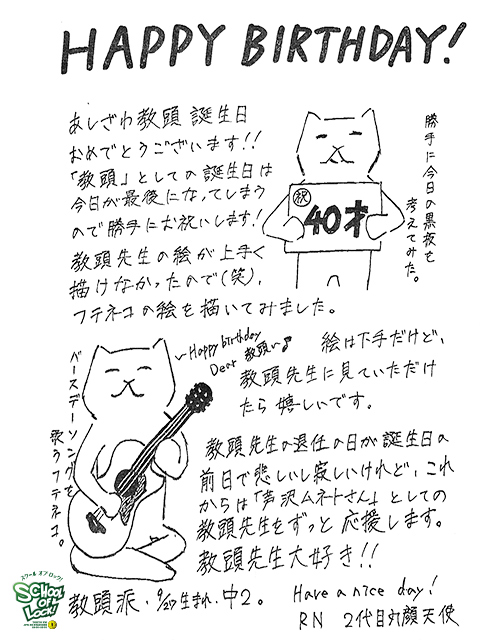 HAPPY BIRTHDAY!
あしざわ教頭 誕生日
おめでとうございます!!
「教頭」としての誕生日は
今日が最後になってしまう
ので勝手にお祝いします!
教頭先生の絵が上手く
描けなかったので(笑)、
フテネコの絵を描いてみました。
勝手に今日の黒板を
考えてみた。
祝
40才
〜Happy birthday
Dear 教頭〜♪
ベースデーソングを
歌うフテネコ。
絵は下手だけど、
教頭先生に見ていただけ
たら嬉しいです。
教頭先生の退任の日が誕生日の
前日で悲しいし寂しいけれど、これ
からは「芦沢ムネトさん」としての
教頭先生をずっと応援します。
教頭先生大好き!!
Have a nice day!
教頭派・9/27生まれ・中2。
RN 2代目丸顔天使
スクール オブ ロック!
SCHOOL OF LOCK!